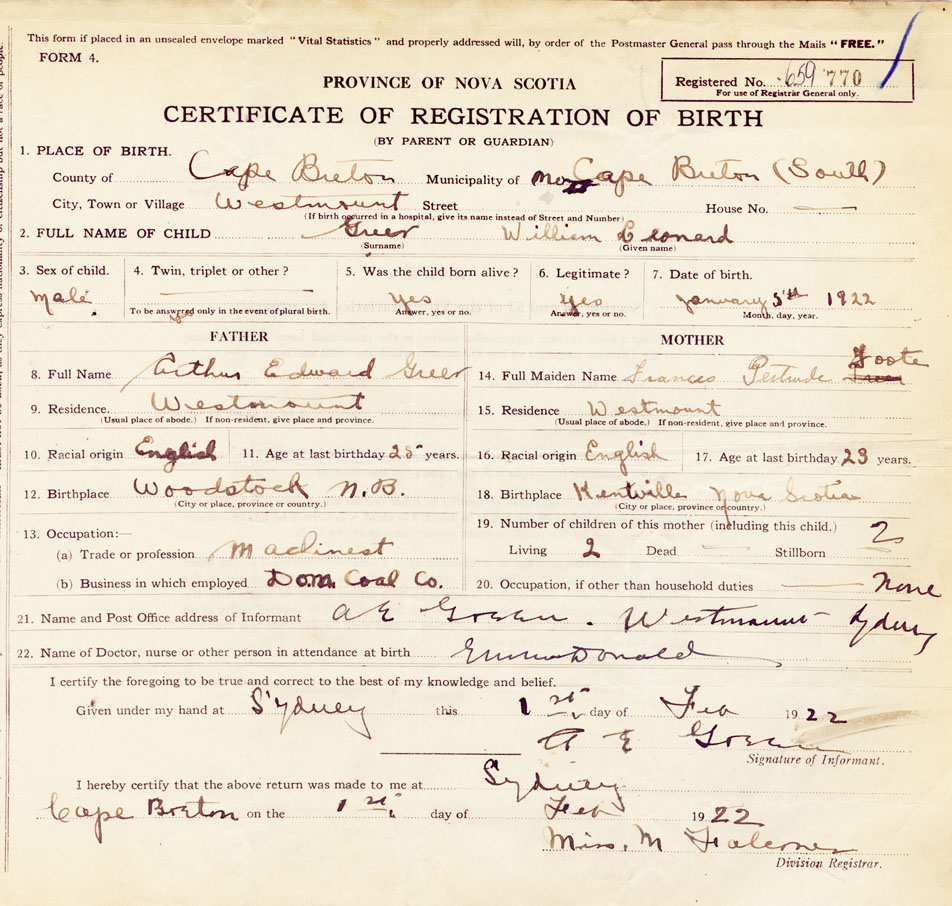 This form if placed in an unsealed envelope marked "Vital Statistics" and properly addressed will, by order of the Postmaster General pass through the Mails "FREE."
FORM 4.
Registered No. 659 770
For use of Registrar General only.
PROVINCE OF NOVA SCOTIA
CERTIFICATE OF REGISTRATION OF BIRTH
(BY PARENT OR GUARDIAN)
1. PLACE OF BIRTH.
County of Cape Breton Municipality of Cape Breton (South)
City, Town or Village Westmount Street House No.
(If birth occurred in a hospital, give its name instead of Street and Number)
2. FULL NAME OF CHILD Greer William Leonard
(Surname) (Given name)
3. Sex of child. 4. Twin, triplet or other? 5. Was the child born alive? 6. Legitimate? 7. Date of birth.
Male. yes yes January 5th 1922
To be answered only in the event of plural birth. Answer, yes or no. Answer, yes or no. Month, day, year.
FATHER
8. Full Name Arthur Edward Greer
9. Residence. Westmount
(Usual place of abode.) If non-resident, give place and province.
10. Racial origin English 11. Age at last birthday 25 years.
12. Birthplace Woodstock N.B.
(City or place, province or country.)
13. Occupation:—
(a) Trade or profession Machinest
(b) Business in which employed Dom. Coal Co.
MOTHER
14. Full Maiden Name Frances Gertrude Foote
15. Residence Westmount
(Usual place of abode.) If non-resident, give place and province.
16. Racial origin English 17. Age at last birthday 23 years.
18. Birthplace Kentville Nova Scotia
(City or place, province or country.)
19. Number of children of this mother (including this child.) 2
Living 2 Dead — Stillborn
20. Occupation, if other than household duties None
21. Name and Post Office address of Informant A E Greer. Westmount Sydney
22. Name of Doctor, nurse or other person in attendance at birth
I certify the foregoing to be true and correct to the best of my knowledge and belief.
Given under my hand at Sydney this 1st day of Feb 1922
A E Greer
Signature of Informant.
I hereby certify that the above return was made to me at Sydney
Cape Breton on the 1st day of Feb 1922
Miss. M Falconer
Division Registrar.